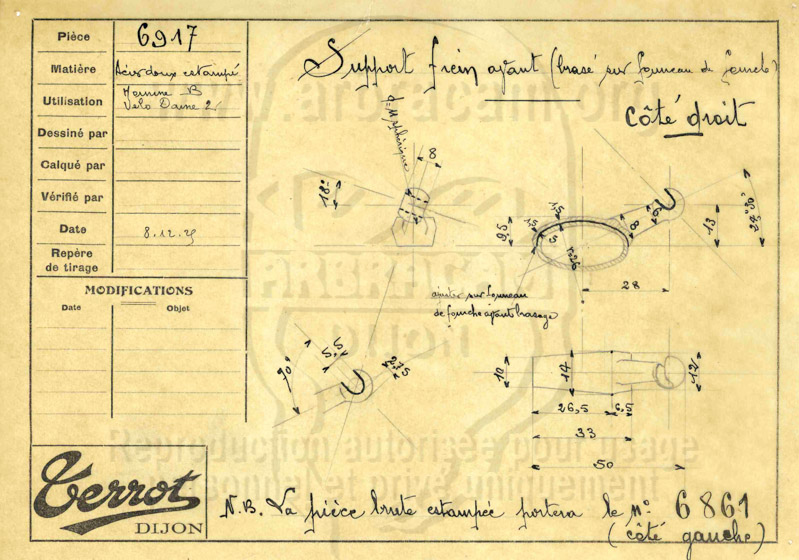 Pièce 6917
Matière Acier doux estampé
Utilisation Homme B
Vélo Dame 2
Dessiné par
Calqué par
Vérifié par
Date 8.12.
Repère
de tirage
MODIFICATIONS
Date Objet
Terrot
DIJON
Support frein avant (brasé sur fourreau de fourche)
côté droit
sphérique
8
18°
1,5
1,5
9,5
5
8
13
28
ajuster sur fourreau
de fourche avant brasage
90°
5,5
2,75
10
14
12
26,5
6,5
33
50
N.B. La pièce brute estampée portera le n° 6861
(côté gauche)
www.arbracam.org
ARBRACAM
DIJON
Reproduction autorisée pour usage
personnel et privé uniquement